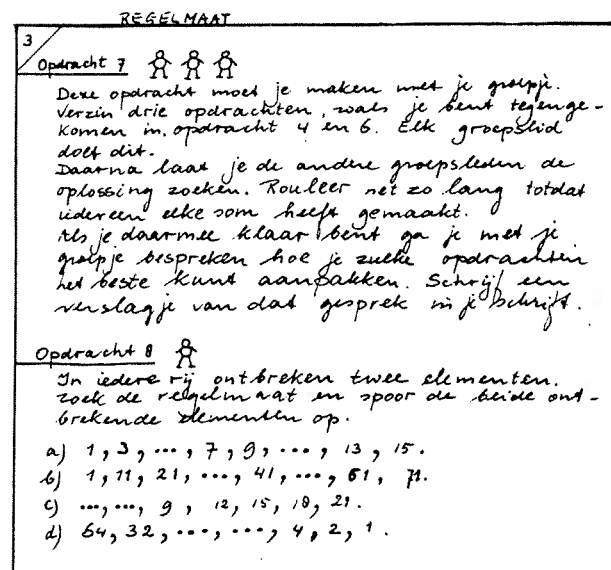 REGELMAAT
3
Opdracht 7
Deze opdracht moet je maken met je groepje.
Verzin drie opdrachten, zoals je bent tegenge-
komen in opdracht 4 en 6. Elk groepslid
doet dit.
Daarna laat je de andere groepsleden de
oplossing zoeken. Rouleer net zo lang totdat
iedereen elke som heeft gemaakt.
Als je daarmee klaar bent ga je met je
groepje bespreken hoe je zulke opdrachten
het beste kunt aanpakken. Schrijf een
verslagje van dat gesprek in je schrift.
Opdracht 8
In iedere rij ontbreken twee elementen.
Zoek de regelmaat en spoor de beide ont-
brekende elementen op.
a) 1, 3, ..., 7, 9, ..., 13, 15.
b) 1, 11, 21, ..., 41, ..., 61, 71.
c) ..., ..., 9, 12, 15, 18, 21.
d) 64, 32, ..., ..., 4, 2, 1.